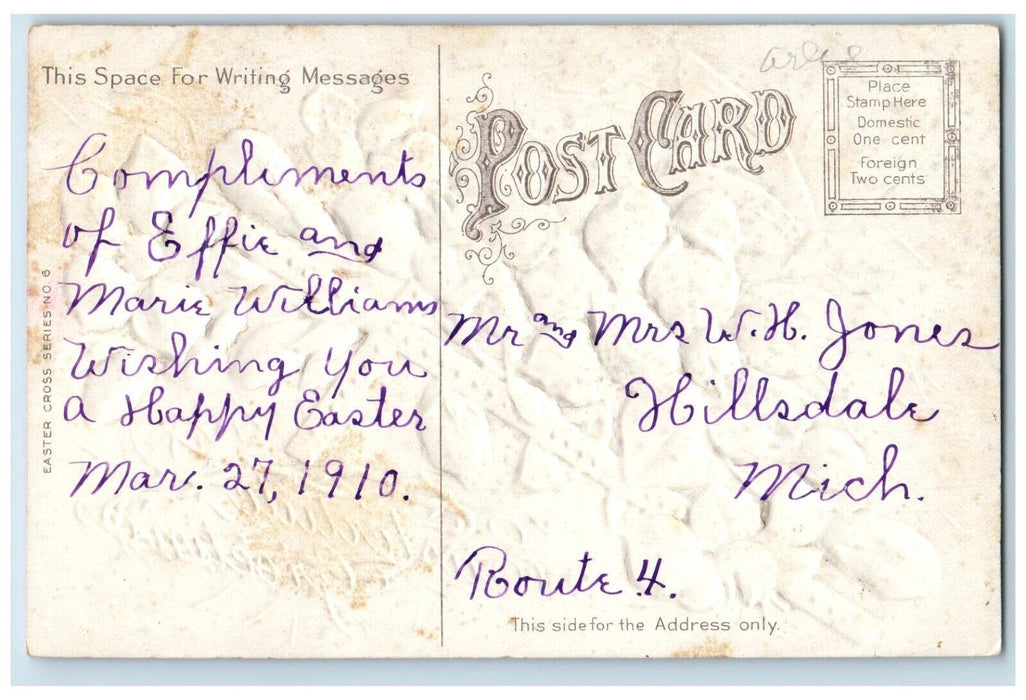 This Space For Writing Messages
Compliments
of Effie and
Marie Williams
Wishing you
a Happy Easter
Mar. 27, 1910.
EASTER CROSS SERIES NO. 6
POST CARD
Place
Stamp Here
Domestic
One cent
Foreign
Two cents
Mr and Mrs W. H. Jones
Hillsdale
Mich.
Route 4.
This side for the Address only.